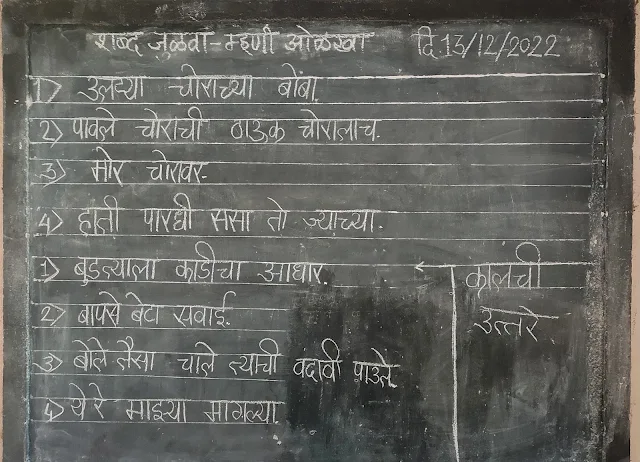 शब्द जुळवा-म्हणी ओळखा दि 13/12/2022
1> उलट्या चोराच्या बोंबा.
2> पावले चोराची ठाऊक चोरालाच.
3> मोर चोरावर.
4> हाती पारधी ससा तो ज्याच्या.
1> बुडत्याला काडीचा आधार.
2> बापसे बेटा सवाई.
3> बोले तैसा चाले त्याची वंदावी पाउले.
4> ये रे माझ्या मागल्या.
← कालची
उत्तरे.